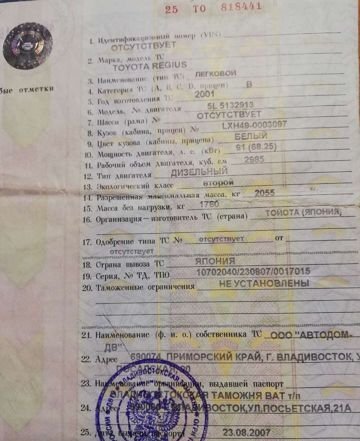 25 ТО 818441
1. Идентификационный номер (VIN)
ОТСУТСТВУЕТ
2. Марка, модель ТС
TOYOTA REGIUS
3. Наименование (тип ТС) ЛЕГКОВОЙ
4. Категория ТС (А, В, С, D, прицеп) B
5. Год изготовления ТС 2001
6. Модель, № двигателя 5L 5132913
7. Шасси (рама) № ОТСУТСТВУЕТ
8. Кузов (кабина, прицеп) № LXH49-0003097
9. Цвет кузова (кабины, прицепа) БЕЛЫЙ
10. Мощность двигателя, л. с. (кВт) 91 (68.25)
11. Рабочий объем двигателя, куб. см 2985
12. Тип двигателя ДИЗЕЛЬНЫЙ
13. Экологический класс второй
14. Разрешенная максимальная масса, кг 2055
15. Масса без нагрузки, кг 1780
16. Организация – изготовитель ТС (страна) ТОЙОТА (ЯПОНИЯ,
17. Одобрение типа ТС № отсутствует от
отсутствует
18. Страна вывоза ТС ЯПОНИЯ
19. Серия, № ТД, ТПО 10702040/230807/0017015
20. Таможенные ограничения НЕ УСТАНОВЛЕНЫ
21. Наименование (ф. и. о.) собственника ТС ООО "АВТОДОМ-
ДВ"
22. Адрес 690074, ПРИМОРСКИЙ КРАЙ, Г. ВЛАДИВОСТОК, У
23. Наименование организации, выдавшей паспорт
ВЛАДИВОСТОКСКАЯ ТАМОЖНЯ ВАТ т/п
24. ВЛАДИВОСТОК,УЛ.ПОСЬЕТСКАЯ,21А
25. Дата выдачи паспорта 23.08.2007
ые отметки